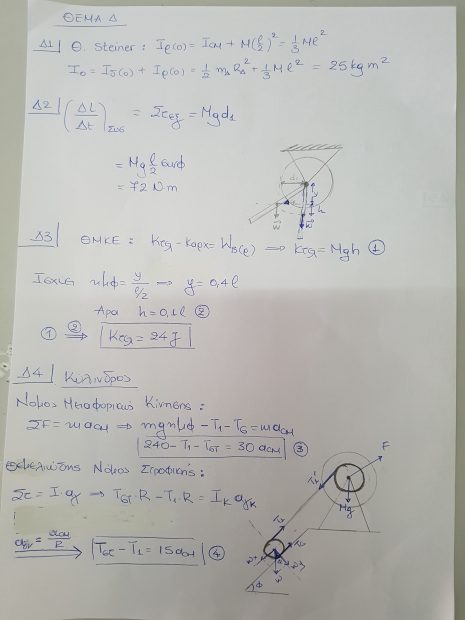 ΘΕΜΑ Δ
Δ1 Θ. Steiner: Iρ(ο) = Icm + M(ℓ/2)² = 1/3 Mℓ²
Iο = IΔ(ο) + Iρ(ο) = 1/2 mΔ RΔ² + 1/3 Mℓ² = 25 kg m²
Δ2 (ΔL/Δt)συσ = Στεξ = Mgd1
= Mg ℓ/2 συνφ
= 72 N·m
d1
y
h
w
w
Δ3 ΘΜΚΕ: Κτελ - Καρχ = Wβ(ρ) ⟹ Κτελ = Mgh ①
Ισχύει ημφ = y/(ℓ/2) ⟹ y = 0,4ℓ
Άρα h = 0,1ℓ ②
① ②⟹ Κτελ = 24 J
Δ4 Κύλινδρος
Νόμος Μεταφορικής Κίνησης:
ΣF = m acm ⟹ mgημφ - T1 - Tστ = m acm
240 - T1 - Tστ = 30 acm ③
Θεμελιώδης Νόμος Στροφικής:
Στ = I·αγ ⟹ Tστ·R - T1·R = Iκ αγκ
αγκ = acm/R ⟹ Tστ - T1 = 15 acm ④
F
T1'
Mg
T1
φ